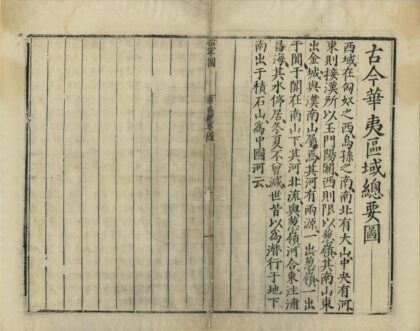 古今華夷區域總要圖
西域在匈奴之西烏孫之南南北有大山中央有河
東則接漢所以玉門陽關西則限以葱嶺其南山東
出金城與漢南山屬焉其河有兩源一出葱嶺一出
于闐于闐在南山下其河北流與葱嶺河合東注浦
昌海其水停居冬夏不曾減世皆以為潛行于地下
南出于積石山為中國河云